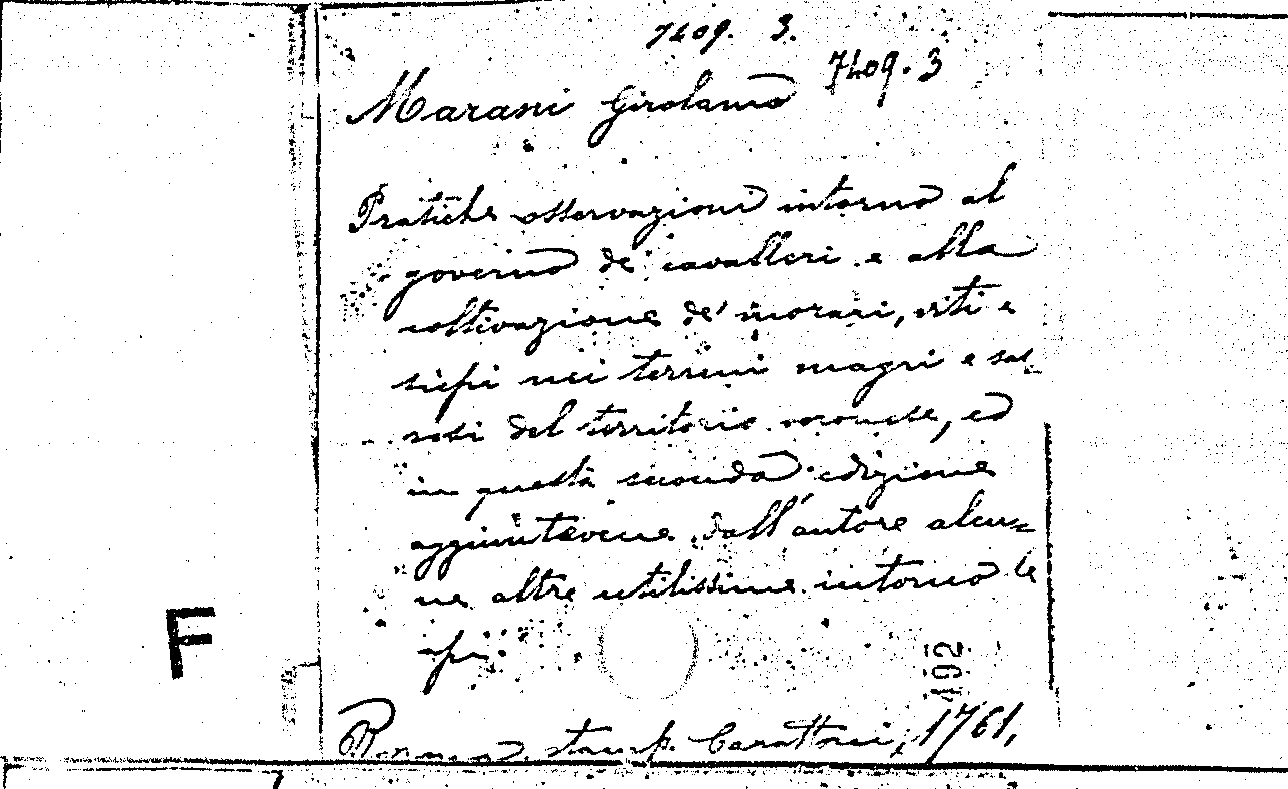 7409. 3.
7409. 3
Marani Girolamo
Pratiche osservazioni intorno al
governo de' cavalleri e alla
coltivazione de' morari, viti e
siepi nei terreni magri e sas-
sosi del territorio veronese, ed
in questa seconda edizione
aggiuntevene dall'autore alcu=
ne altre utilissime intorno le
api.
492
stamp. Carattoni, 1761,
F